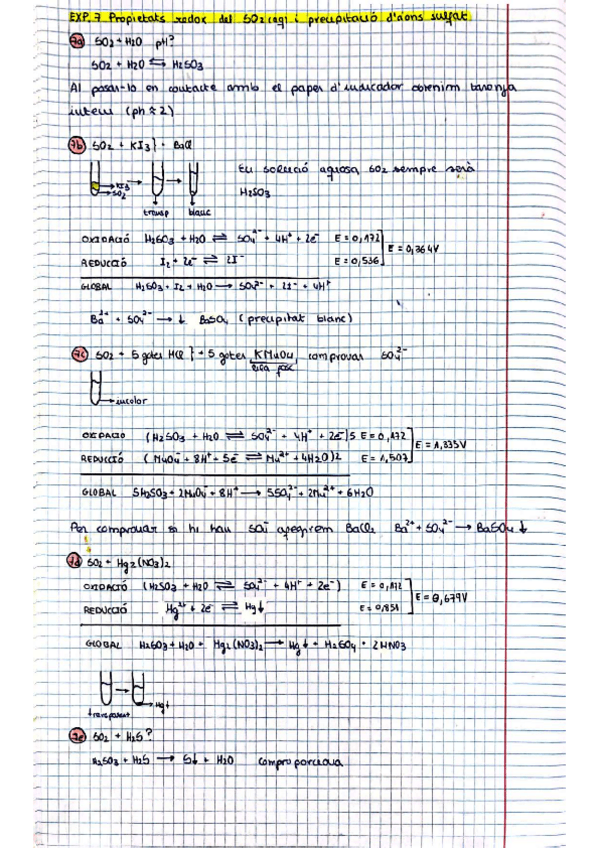 EXP. 7 Propietats redox del SO2(aq) i precipitació d'anions sulfat
7a) SO2 + H2O pH?
SO2 + H2O ⇆ H2SO3
Al posar-lo en contacte amb el paper d'indicador obtenim taronja
intens (ph ≈ 2)
7b) SO2 + KI3} + BaCl
En solució aquosa SO2 sempre serà
H2SO3
KI3
SO2
transp blanc
OXIDACIÓ H2SO3 + H2O ⇌ SO4²⁻ + 4H⁺ + 2e⁻ E = 0,172
E = 0,364V
REDUCCIÓ I2 + 2e⁻ ⇌ 2I⁻ E = 0,536
GLOBAL H2SO3 + I2 + H2O → SO4²⁻ + 2I⁻ + 4H⁺
Ba²⁺ + SO4²⁻ → ↓ BaSO4 (precipitat blanc)
7c) SO2 + 5 gotes HCl } + 5 gotes KMnO4, comprovar SO4²⁻
incolor
OXIDACIO (H2SO3 + H2O ⇌ SO4²⁻ + 4H⁺ + 2e⁻)5 E = 0,172
E = 1,335V
REDUCCIÓ (MnO4⁻ + 8H⁺ + 5e⁻ ⇌ Mn²⁺ + 4H2O)2 E = 1,507
GLOBAL 5H2SO3 + 2MnO4⁻ + 8H⁺ → 5SO4²⁻ + 2Mn²⁺ + 6H2O
Per comprovar si hi han SO4⁻ afegirem BaCl2 Ba²⁺ + SO4²⁻ → BaSO4 ↓
7d) SO2 + Hg2(NO3)2
OXIDACIÓ (H2SO3 + H2O ⇌ SO4²⁻ + 4H⁺ + 2e⁻) E = 0,172
E = 0,679V
REDUCCIÓ Hg²⁺ + 2e⁻ ⇌ Hg↓ E = 0,851
GLOBAL H2SO3 + H2O + Hg2(NO3)2 → Hg↓ + H2SO4 + 2HNO3
Hg↓
transparent
7e) SO2 + H2S?
H2SO3 + H2S → S↓ + H2O